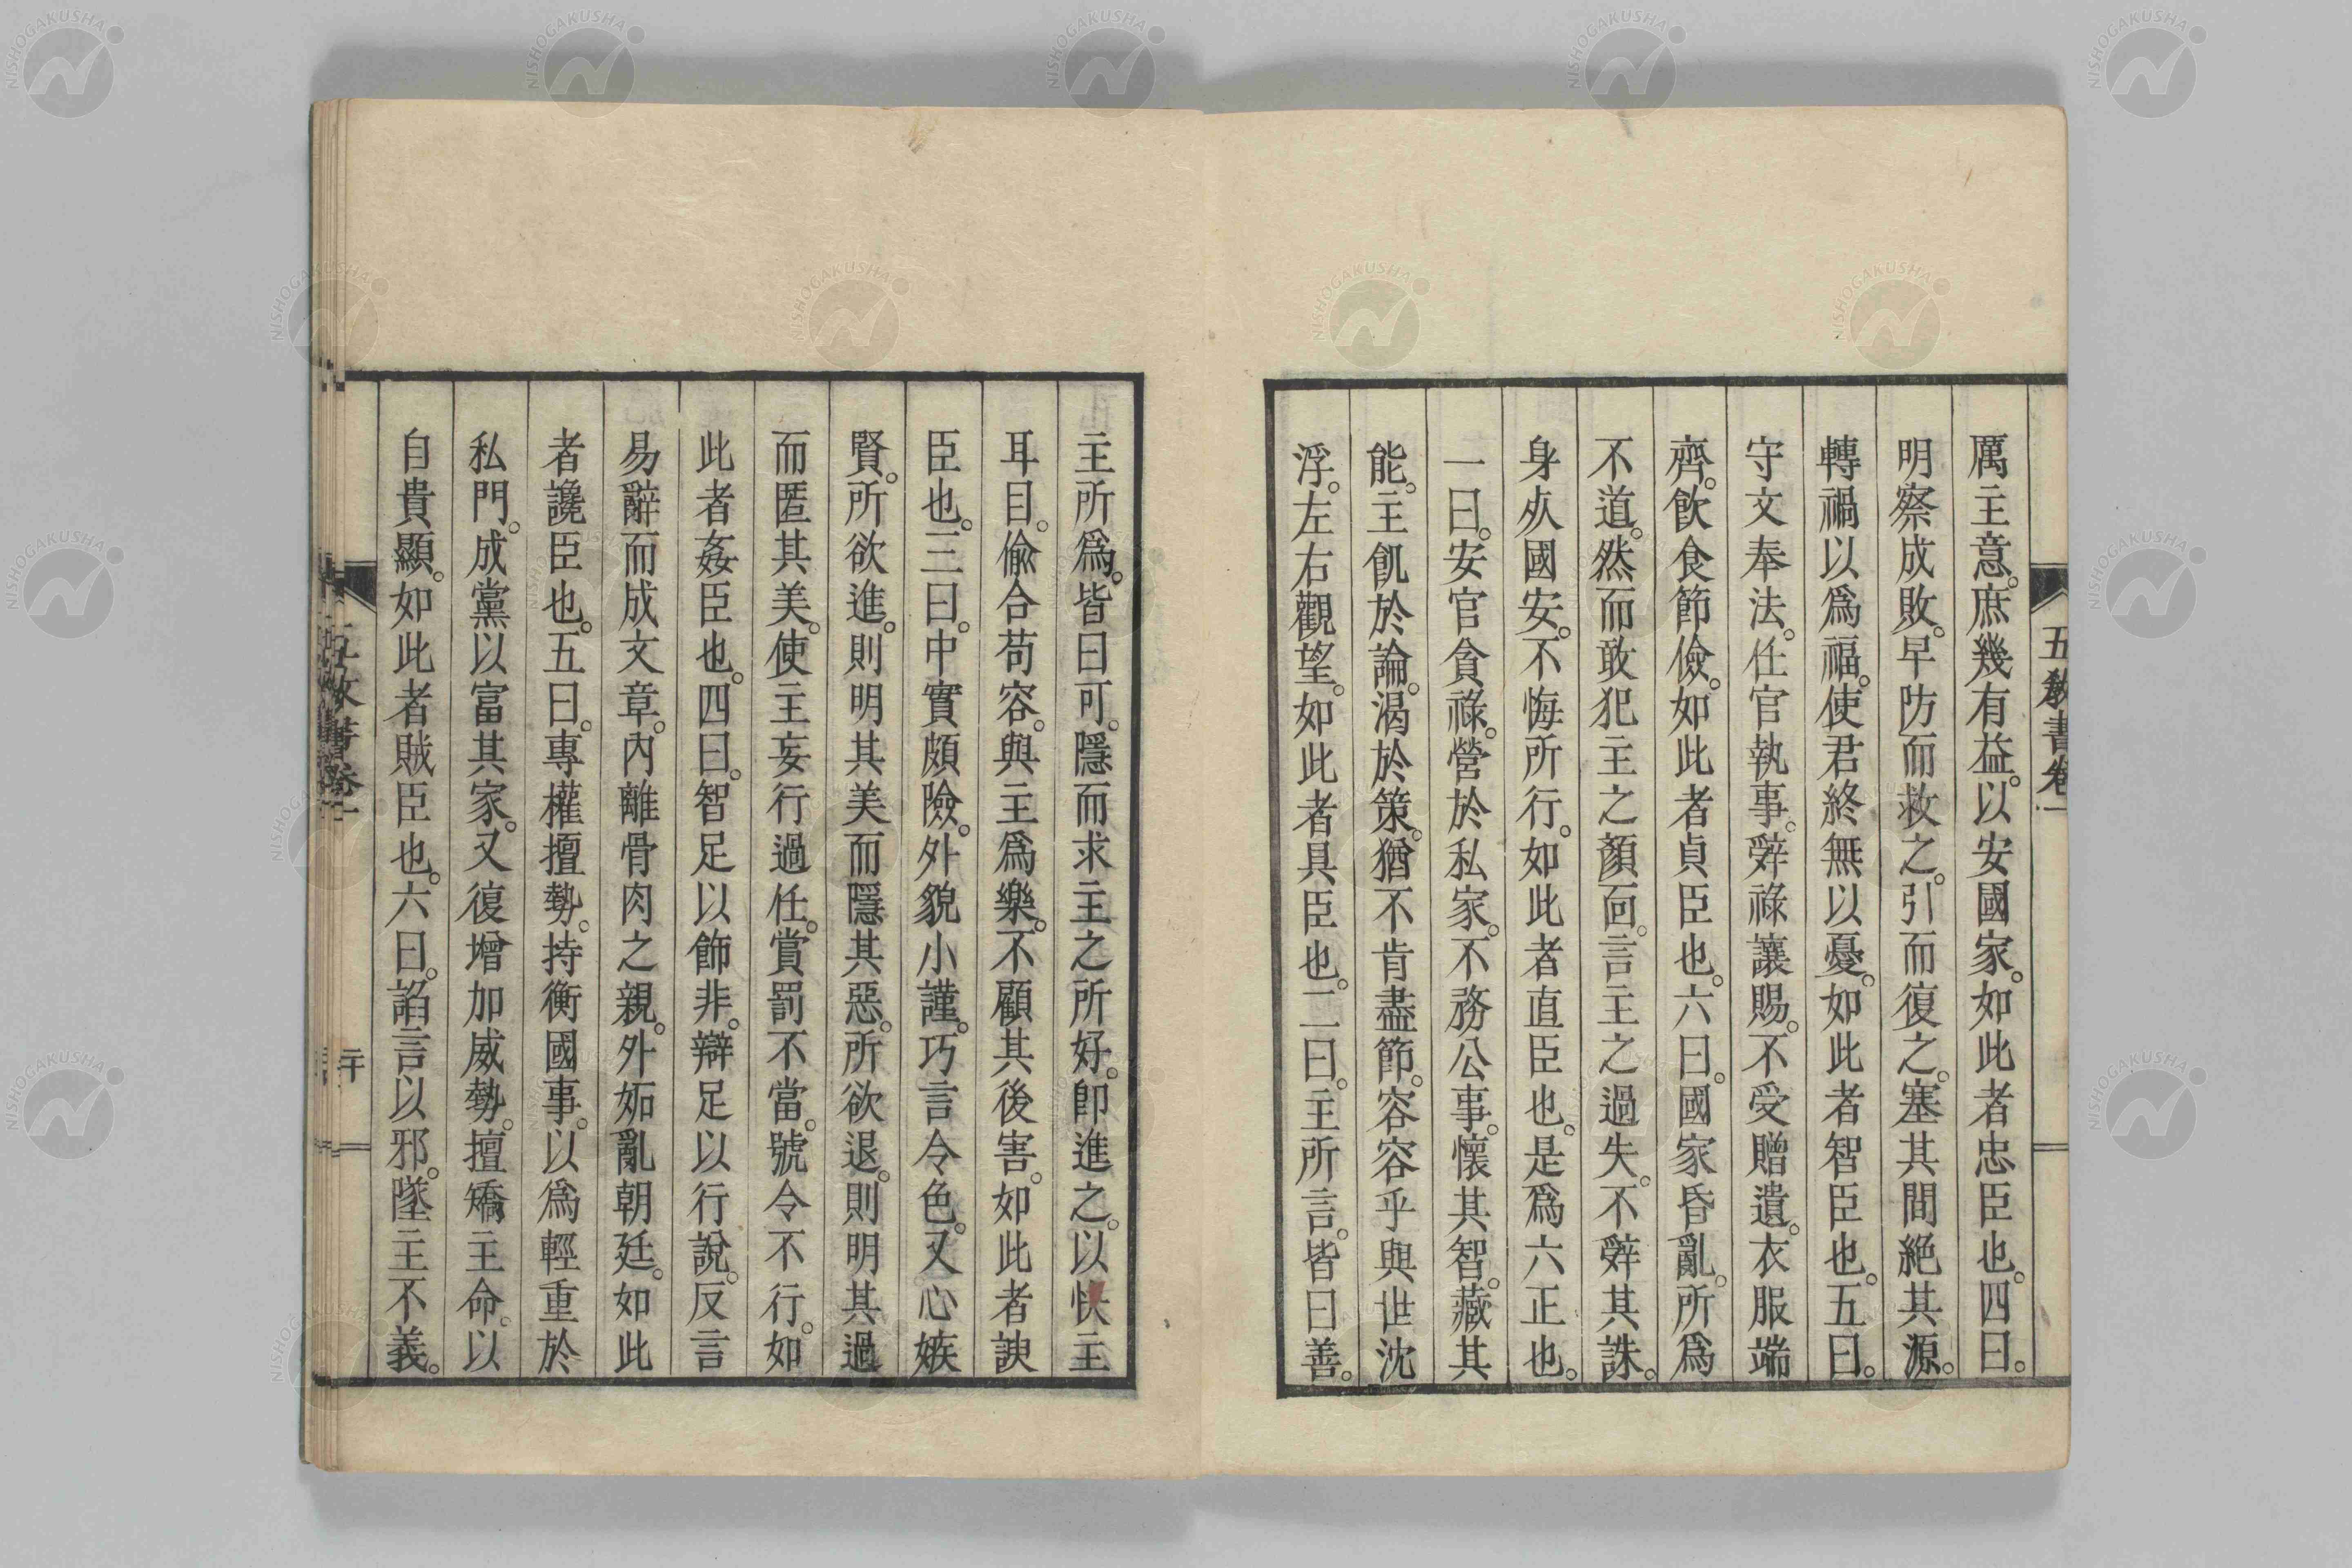 五教書卷一
厲主意。庶幾有益。以安國家。如此者忠臣也。四曰。
明察成敗。早防而救之。引而復之。塞其間絕其源。
轉禍以爲福。使君終無以憂。如此者智臣也。五曰。
守文奉法。任官執事。辤祿讓賜。不受贈遺。衣服端
齊。飮食節儉。如此者貞臣也。六曰。國家昏亂。所爲
不道。然而敢犯主之顏面。言主之過失。不辤其誅。
身死國安。不悔所行。如此者直臣也。是爲六正也。
一曰。安官貪祿。營於私家。不務公事。懷其智。藏其
能。主飢於論。渴於策。猶不肯盡節。容容乎與世沈
浮。左右觀望。如此者具臣也。二曰。主所言。皆曰善。
主所爲。皆曰可。隱而求主之所好。卽進之。以快主
耳目。偸合苟容。與主爲樂。不顧其後害。如此者諛
臣也。三曰。中實頗險。外貌小謹。巧言令色。又心嫉
賢。所欲進。則明其美而隱其惡。所欲退。則明其過
而匿其美。使主妄行過任。賞罰不當。號令不行。如
此者姦臣也。四曰。智足以飾非。辯足以行說。反言
易辭而成文章。內離骨肉之親。外妬亂朝廷。如此
者讒臣也。五曰。專權擅勢。持衡國事。以爲輕重於
私門。成黨以富其家。又復增加威勢。擅矯主命。以
自貴顯。如此者賊臣也。六曰。諂言以邪。墜主不義。
NISHOGAKUSHA